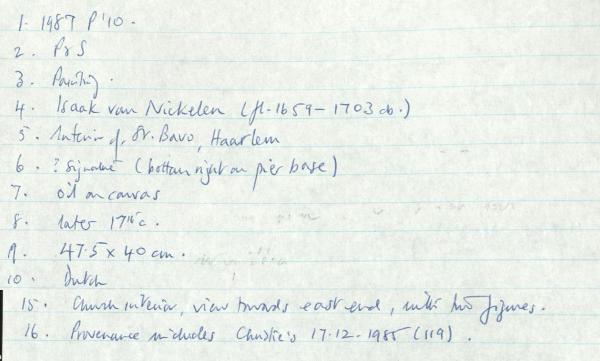 1. 1987 P'10.
2. P & S
3. Painting.
4. Isaak van Nickelen (fl. 1659 - 1703 ob.)
5. Interior of St. Bavo, Haarlem
6. ? Signature (bottom right on pier base)
7. oil on canvas
8. later 17th c.
9. 47.5 x 40 cm.
10. Dutch
15. Church interior, view towards east end, with two figures.
16. Provenance includes Christie's 17.12.1985 (119).